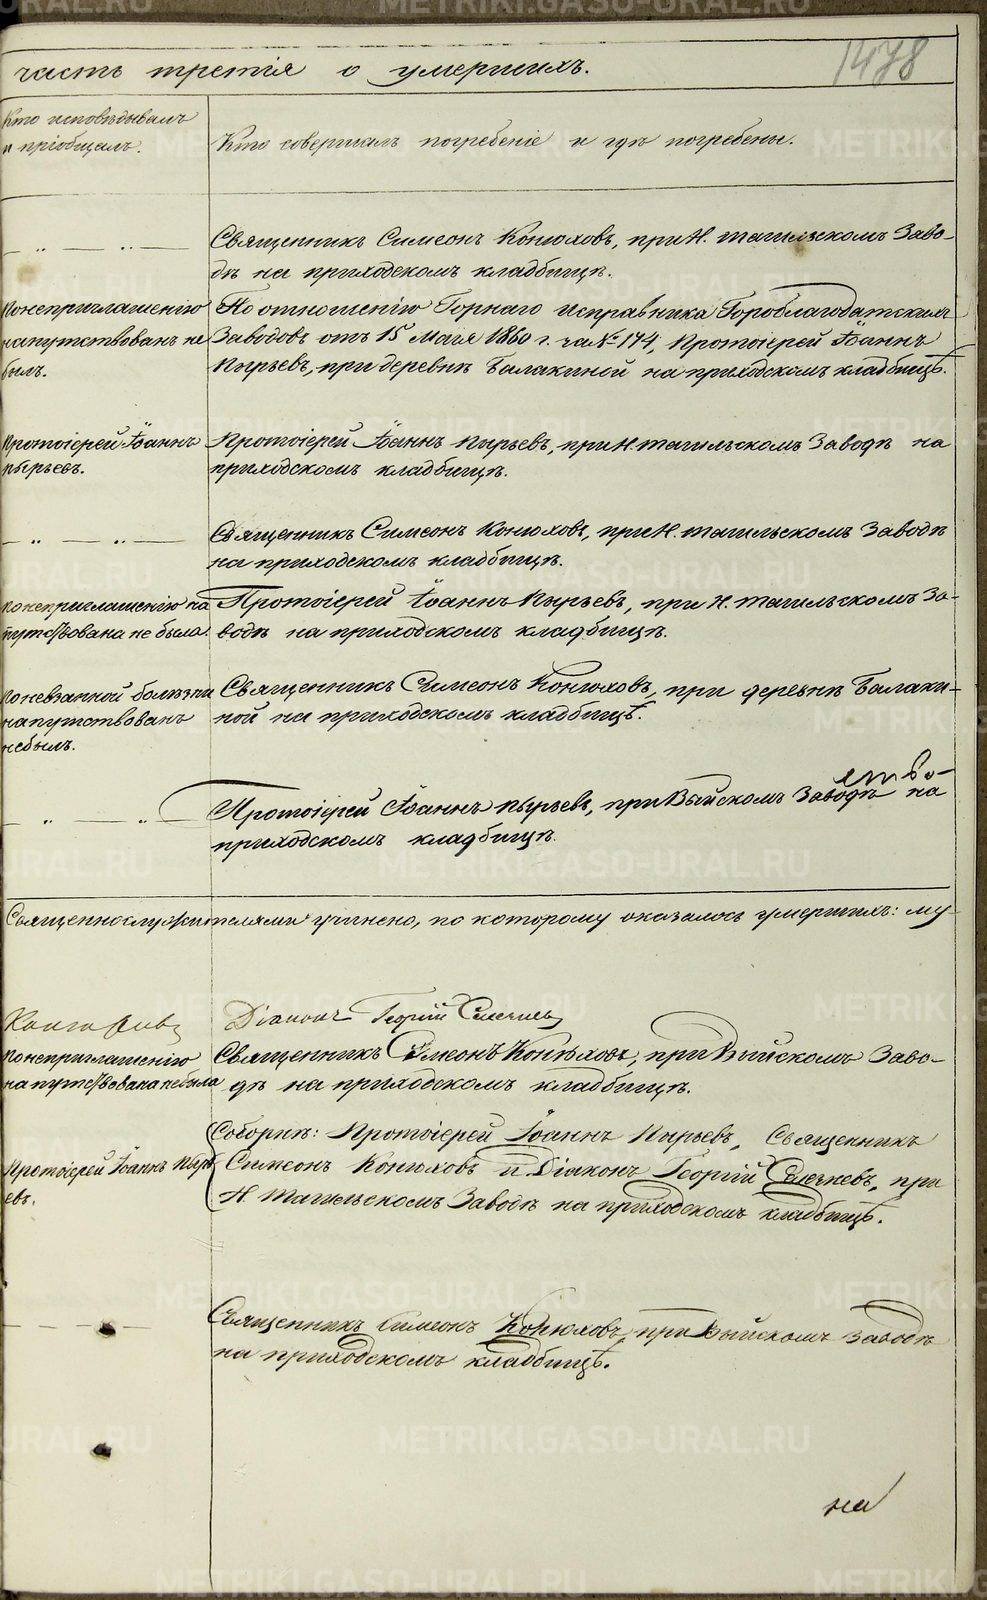 часть третія о умершихъ.
1478
Кто исповѣдывалъ
и пріобщалъ.
Кто совершалъ погребеніе и гдѣ погребены.
— „ — „ —
Священникъ Симеонъ Конюховъ, при Н. тагильскомъ Заво-
дѣ на приходскомъ кладбищѣ.
По неприглашенію
напутствованъ не
былъ.
По отношенію Горнаго исправника Гороблагодатскихъ
Заводовъ отъ 15 Мая 1860 г. за № 174, Протоіерей Іоаннъ
Пырьевъ, при деревнѣ Балакиной на приходскомъ кладбищѣ.
Протоіерей Іоаннъ
Пырьевъ.
Протоіерей Іоаннъ Пырьевъ, при Н. тагильскомъ Заводѣ на
приходскомъ кладбищѣ.
— „ — „ —
Священникъ Симеонъ Конюховъ, при Н. тагильскомъ Заводѣ
на приходскомъ кладбищѣ.
по неприглашенію на
путствована не была.
Протоіерей Іоаннъ Пырьевъ, при Н. тагильскомъ За-
водѣ на приходскомъ кладбищѣ.
по невзапной болѣзни
напутствованъ
небылъ.
Священникъ Симеонъ Конюховъ, при деревнѣ Балаки-
ной на приходскомъ кладбищѣ.
— „ — „ —
Протоіерей Іоаннъ Пырьевъ, при Выйскомъ Заводѣ на
приходскомъ кладбищѣ.
Священнослужителями учинено, по которому оказалось умершихъ: му-
Діаконъ Георгій
по неприглашенію
напутствована небыла
Священникъ Симеонъ Конюховъ, при Выйскомъ Заво-
дѣ на приходскомъ кладбищѣ.
Протоіерей Іоаннъ Пырь
евъ.
Соборнѣ: Протоіерей Іоаннъ Пырьевъ, Священникъ
Симеонъ Конюховъ и Діаконъ Георгій при
Н. Тагильскомъ Заводѣ на приходскомъ кладбищѣ.
Священникъ Симеонъ Конюховъ, при Выйскомъ заводѣ
на приходскомъ кладбищѣ.
на
METRIKI.GASO-URAL.RU